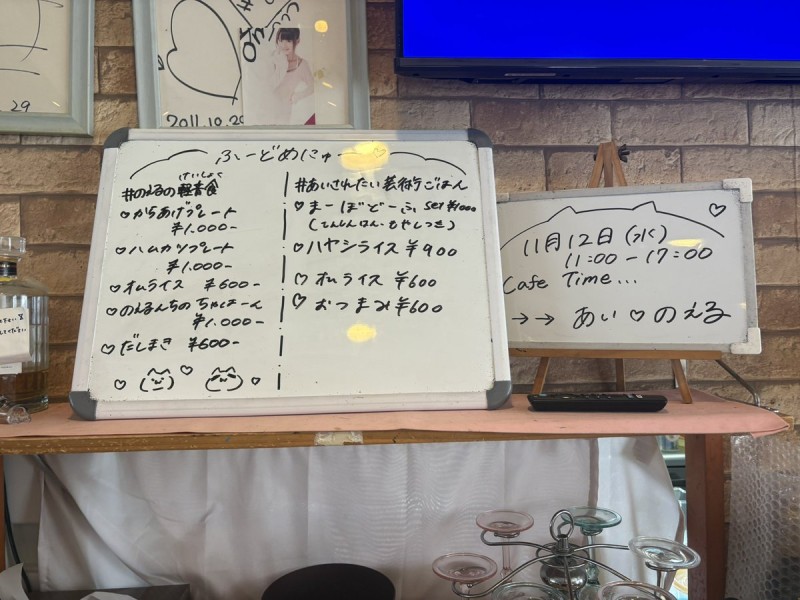 29
2011.10.29
ふーどめにゅー
#のえるの軽食
けいしょく
♡からあげプレート
¥1.000-
♡ハムカツプレート
¥1.000-
♡オムライス ¥600-
♡のえるんちのちゃはーん
¥1.000-
♡だしまき ¥600-
#あいされたい
ごはん
♡まーぼどーふ set ¥1000
(てんしんはん・もやしつき)
♡ハヤシライス ¥900
♡オムライス ¥600
♡おつまみ ¥600
11月12日(水)
11:00-17:00
Cafe Time...
→→ あい♡のえる